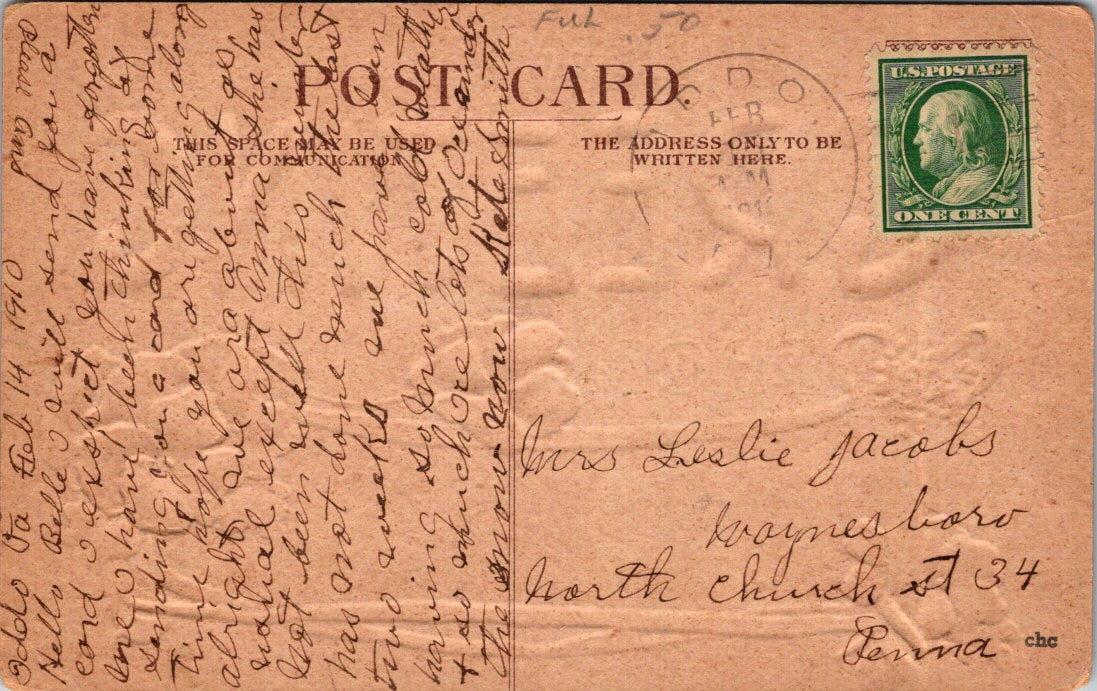 Feb .50
POST CARD.
THIS SPACE MAY BE USED
FOR COMMUNICATION
THE ADDRESS ONLY TO BE
WRITTEN HERE.
FEB
AM
U.S. POSTAGE
ONE CENT
Oddo Va Feb 14 1910
Hello Belle I will send you a
card I expect you have forgoten
me I have been thinking of
sending you a card for some
time hope you are getting along
alright we are about as
usual except Amma she has
not been well this winter
has not done much the last
two weeks we have been
having so much cold weathe
& so much ice lots of ice under
the snow now Kate Smith
Mrs Leslie Jacobs
Waynesboro
North Church St 34
Penna
chc